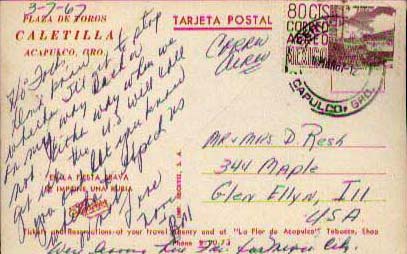 3-7-67
PLAZA DE TOROS
CALETILLA
ACAPULCO, GRO.
TARJETA POSTAL
CORREO
AEREO
80 CTS
CORREO
AEREO
MEXICO
ACAPULCO, GRO.
Hi Folks,
don't know
whether I'll get to stop
on my way back or
not. Either way when we
get in the U.S. will call
you & let you know
what
us
Love
EN LA FIESTA BRAVA
SE IMPONE UNA RUBIA
Mr & Mrs D. Resh
344 Maple
Glen Ellyn, Ill
USA
Tickets and Reservations at your travel Agency and at "La Flor de Acapulco" Tobacco, Shop
Phone 2-10-73
City.